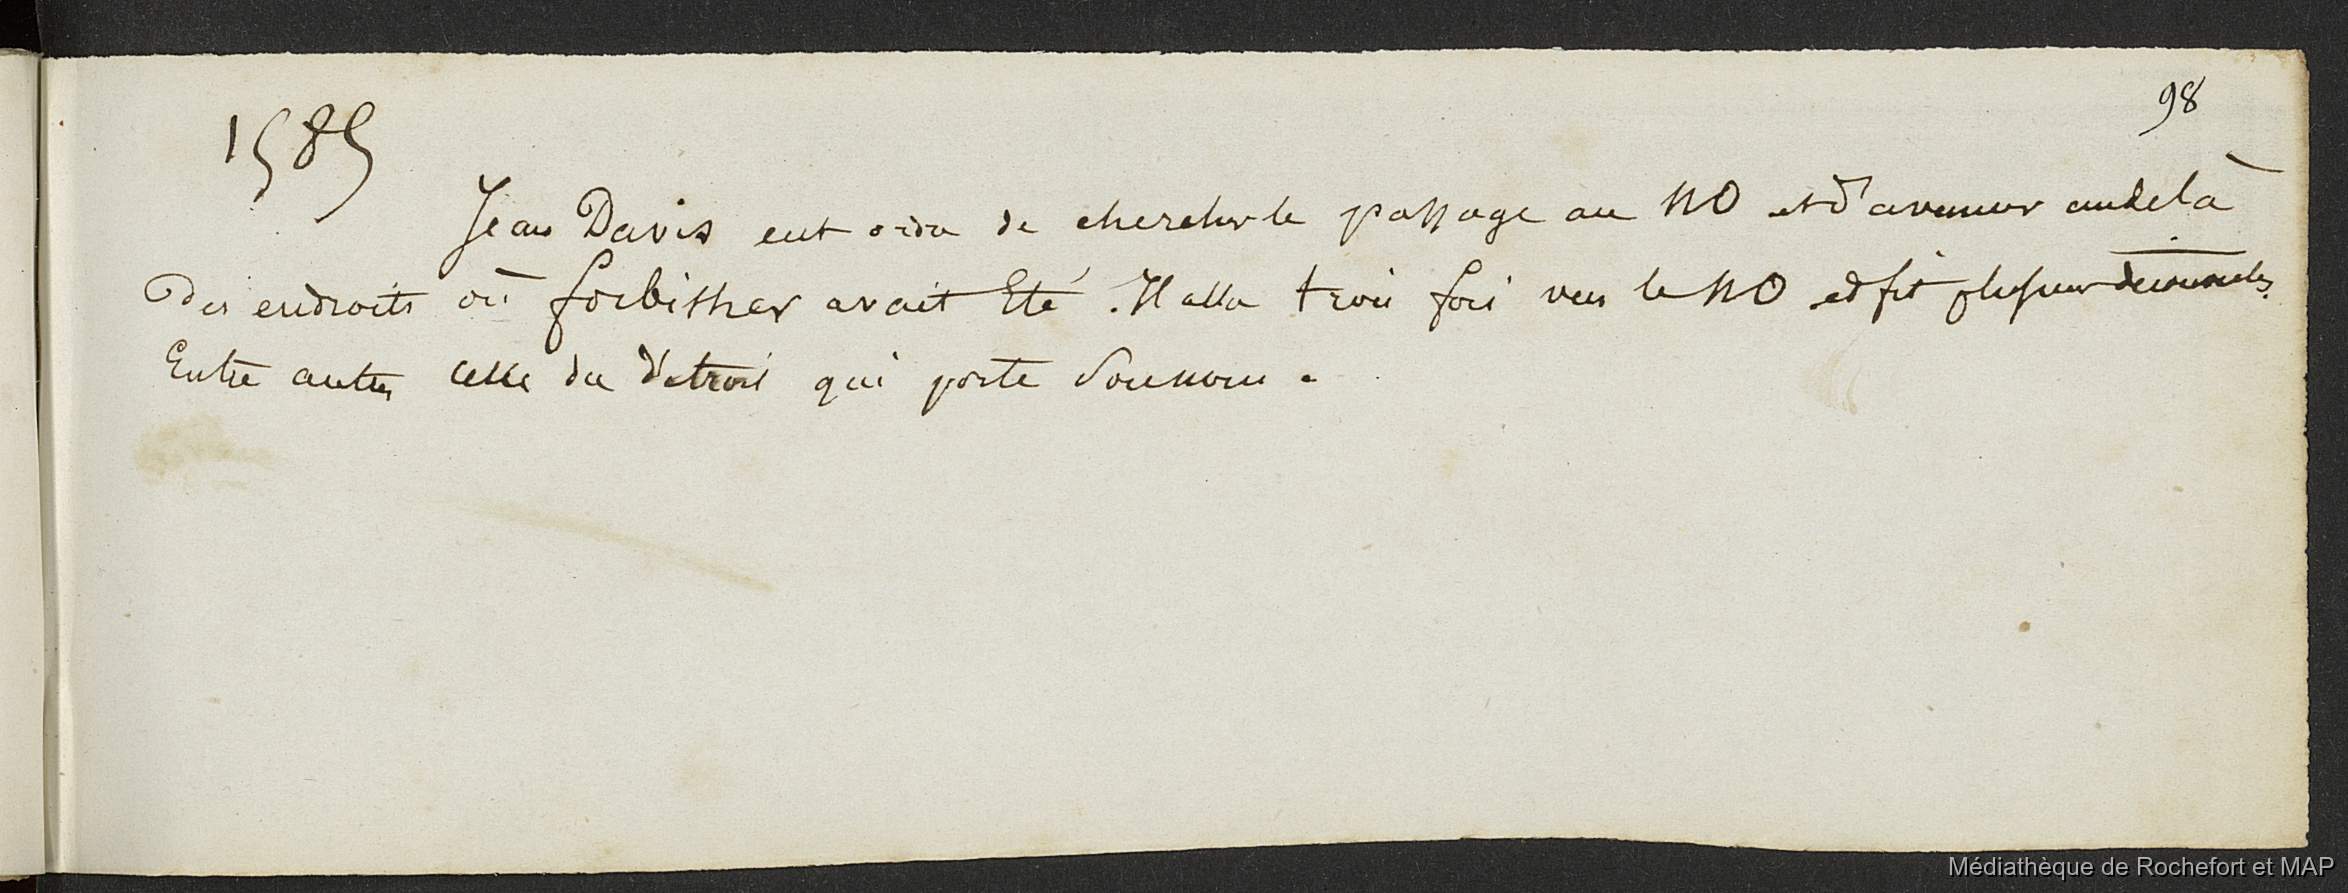 98
1585
Jean Davis eut ordre de chercher le passage au NO et d'avancer audelà
des endroits où forbisher avait Eté. Il alla trois fois vers le NO et fit plusieurs découvertes
Entre autres celle du Détroit qui porte Son nom.
Médiathèque de Rochefort et MAP